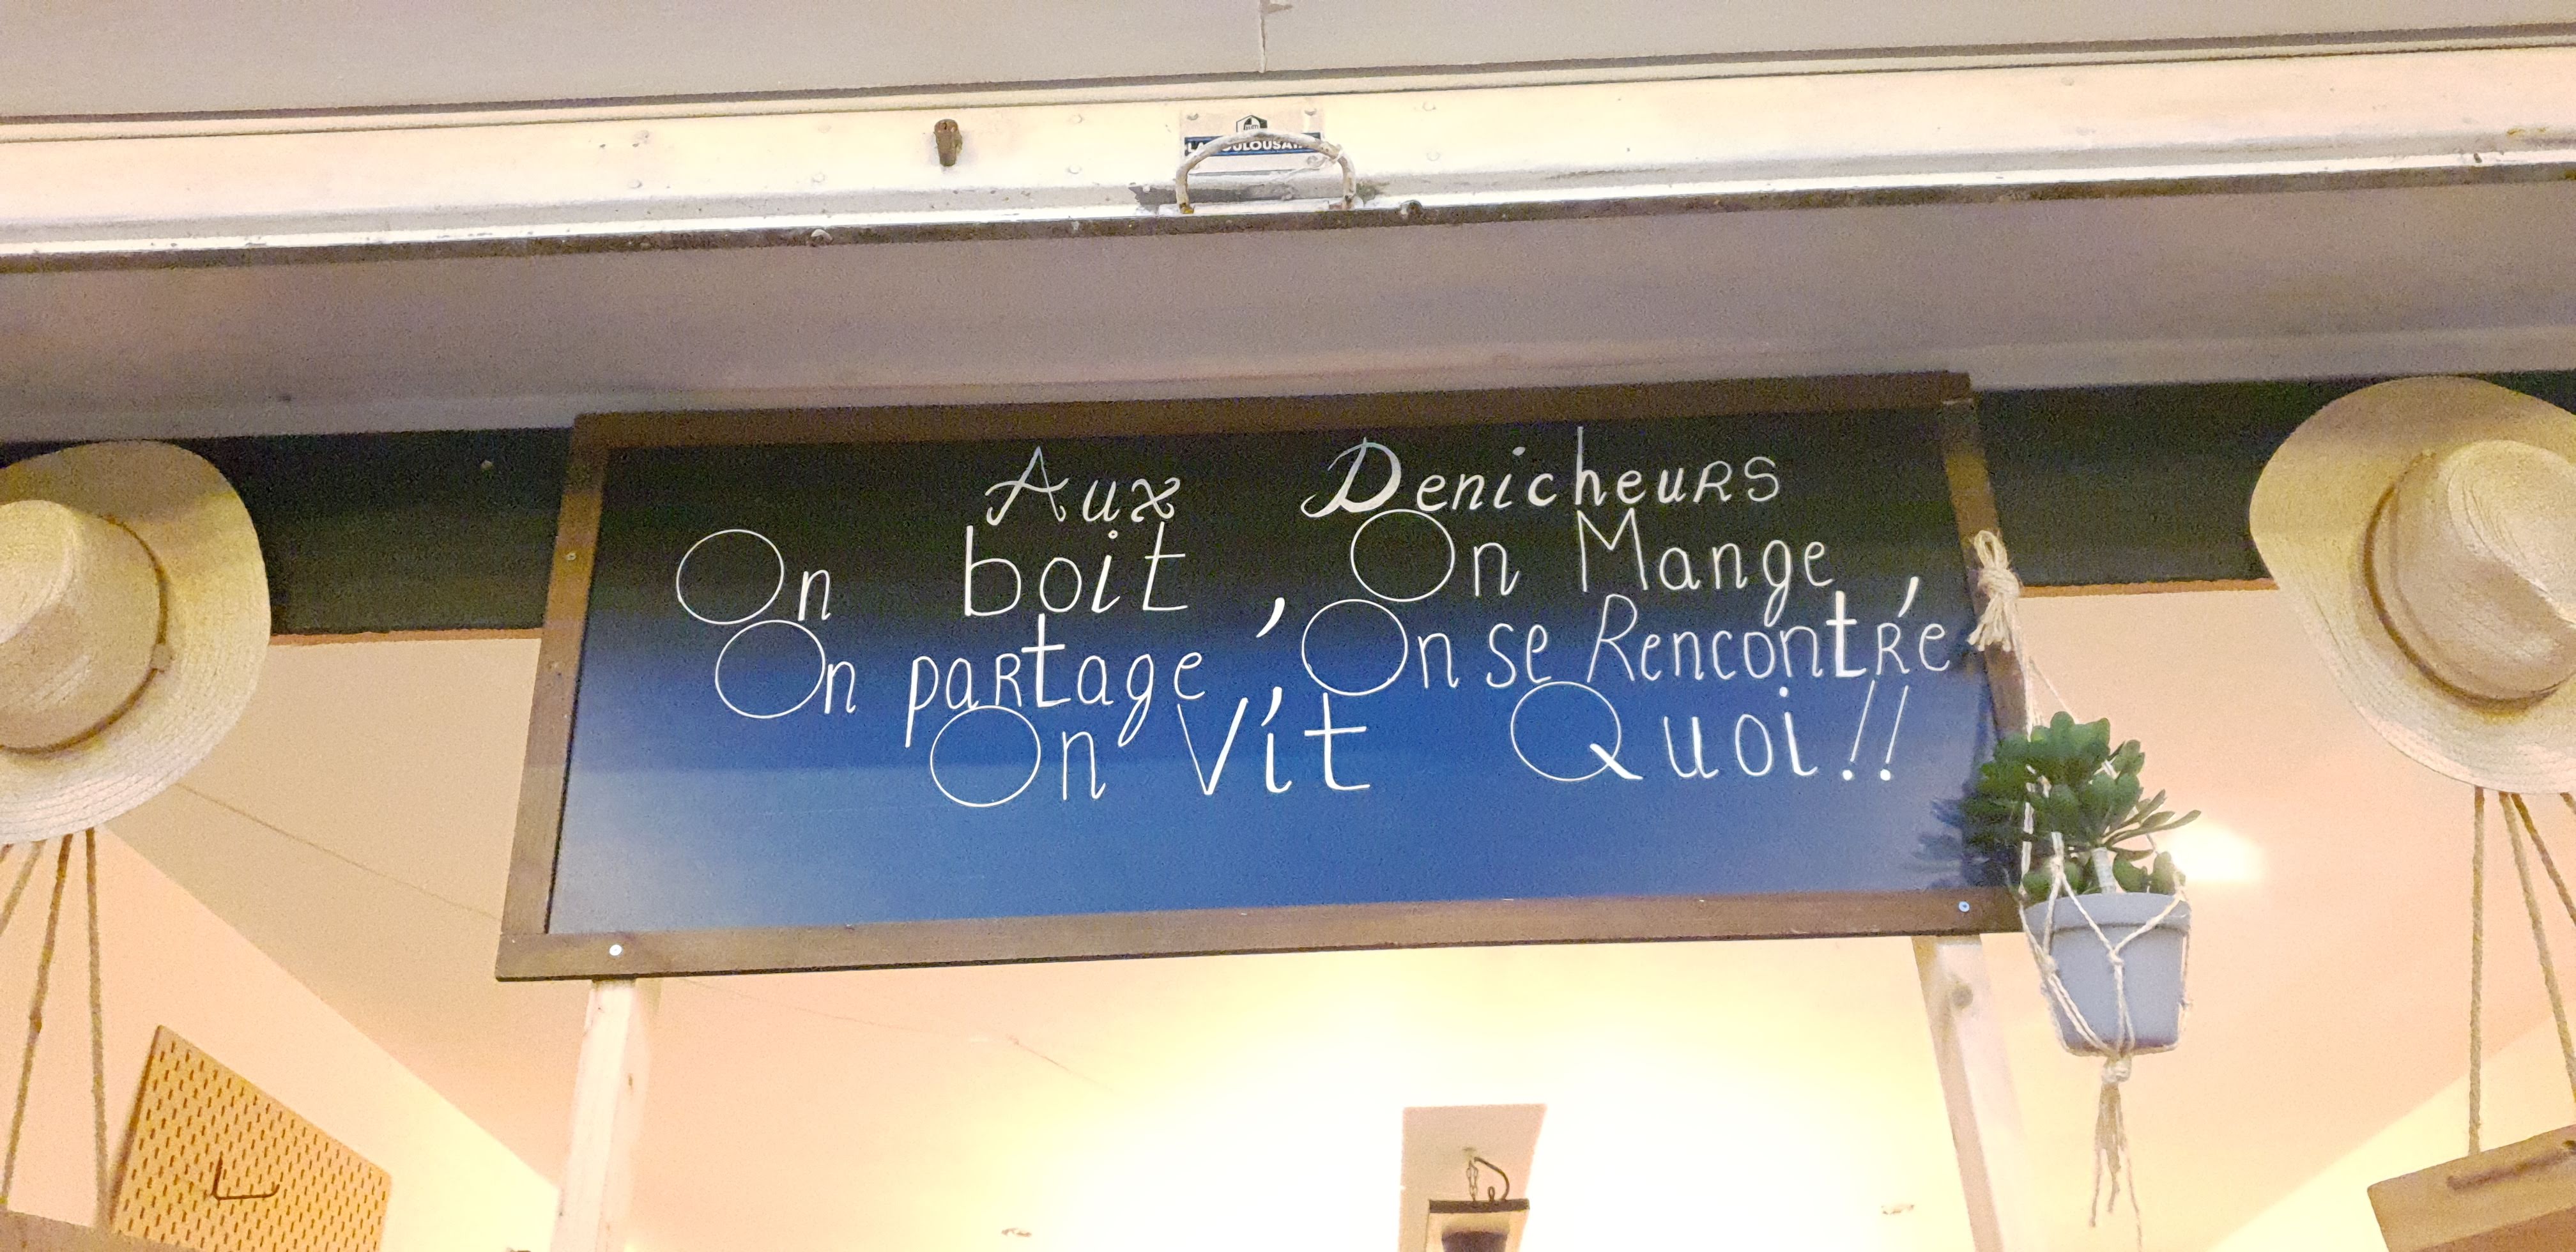 LA TOULOUSAINE
Aux Denicheurs
On boit , On Mange ,
On partage , On se Rencontre
On Vit Quoi !!